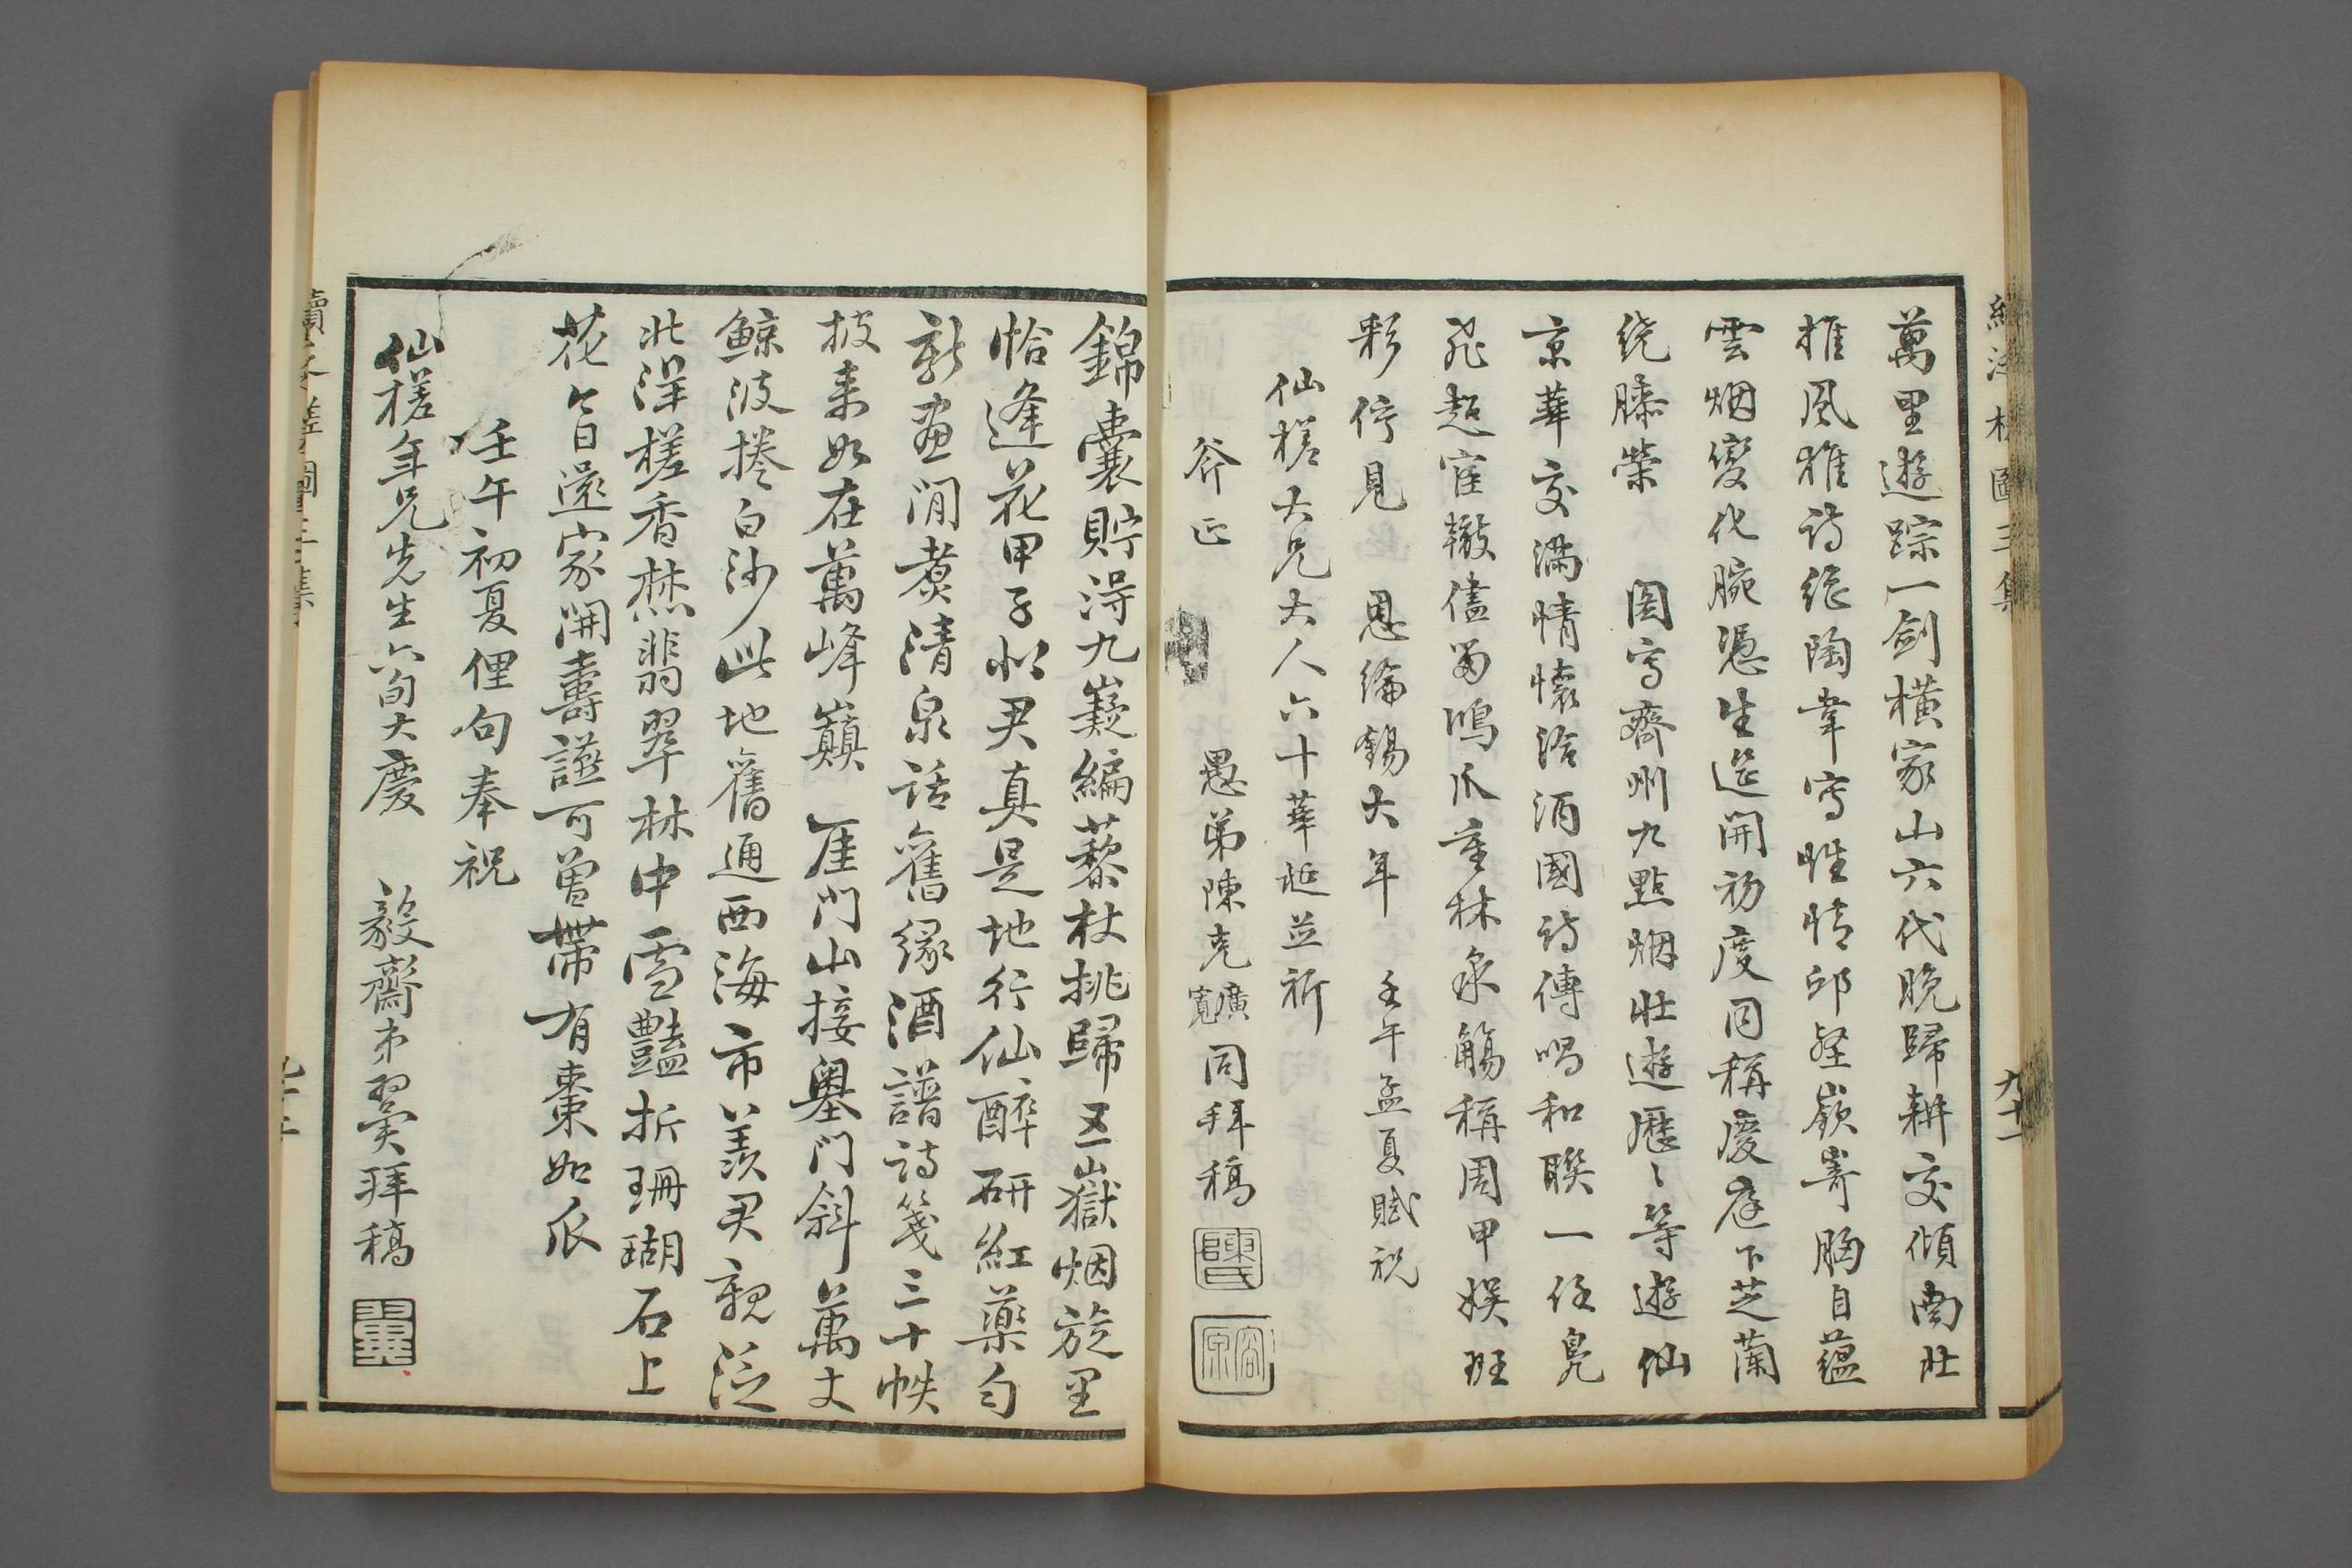 萬里遊踪一劍橫家山六代晚歸耕交傾南北
推風雅詩繼陶韋寫性情邱壑嶔崎胸自蘊
雲烟變化腕憑生筵開初度同稱慶庭下芝蘭
繞膝榮　圖寫齊州九點烟壯遊歷〻等遊仙
京華交滿情懷洽酒國詩傳唱和聯一任鳧
飛超宦轍儘留鴻爪重林泉觴稱周甲娛班
彩佇見　恩綸錫大年　壬午孟夏賦祝
仙槎大兄大人六十華誕並祈
斧正　愚弟陳克廣寬同拜稿
陳氏
錦囊貯得九嶷編藜杖挑歸五嶽烟旋里
恰逢花甲子似君真是地行仙醉研紅藥勻
新畫閒煮清泉話舊緣酒譜詩箋三十帙
披来如在萬峰巔　厓門山接墨門斜萬丈
鯨波捲白沙此地舊通西海市羨君親泛
北洋槎香燃翡翠林中雪豔折珊瑚石上
花今日還家開壽讌可曾帶有棗如瓜
壬午初夏俚句奉祝
仙槎年兄先生六旬大慶　毅齋弟翼拜稿
續泛槎圖三集
九十一